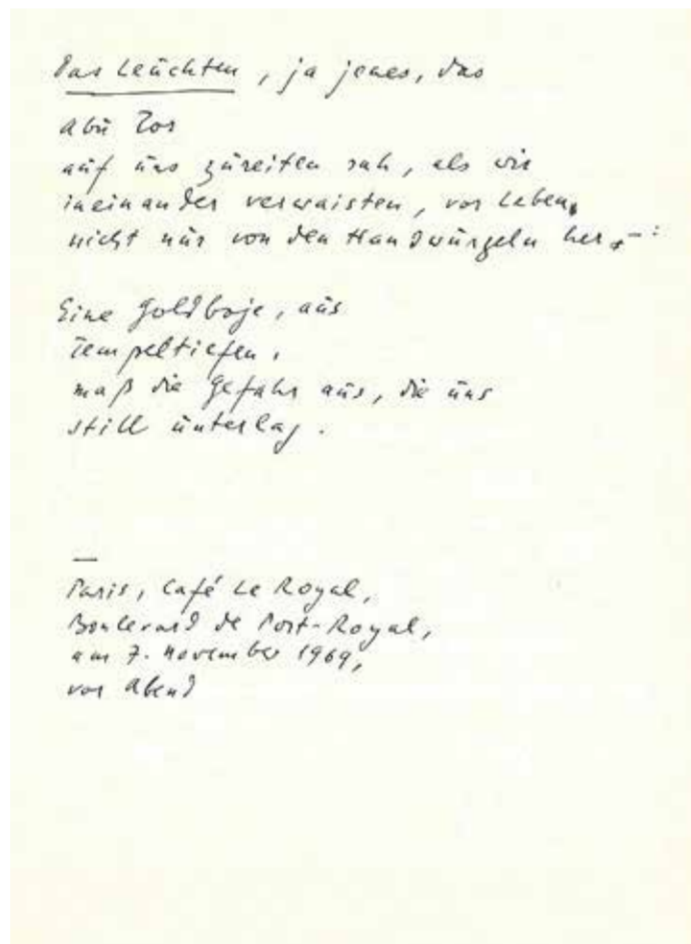 Das Leuchten, ja jenes, das
Abu Tor
auf uns zureiten sah, als wir
ineinander verwaisten, vor Leben,
nicht nur von den Handwurzeln her –:
Eine Goldboje, aus
Tempeltiefen,
maß die Gefahr aus, die uns
still unterlag.
—
Paris, Café Le Royal,
Boulevard de Port-Royal,
am 7. November 1969,
vor Abend